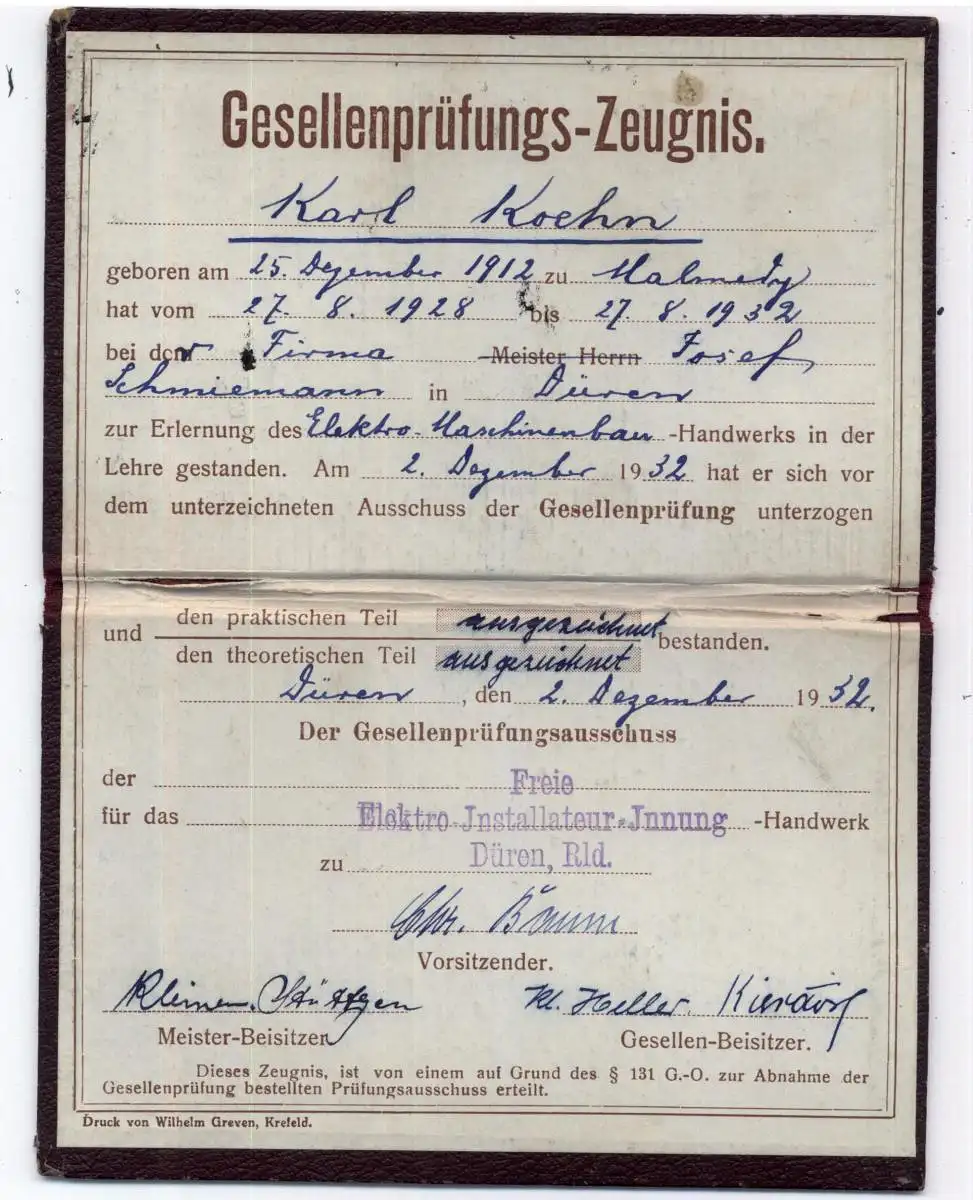 Gesellenprüfungs-Zeugnis.
Karl Koehn
geboren am 25. Dezember 1912 zu Malmedy
hat vom 27. 8. 1928 bis 27. 8. 1932
bei der Firma Meister Herrn Josef
Schmiemann in Düren
zur Erlernung des Elektro-Maschinenbau-Handwerks in der
Lehre gestanden. Am 2. Dezember 1932 hat er sich vor
dem unterzeichneten Ausschuss der Gesellenprüfung unterzogen
den praktischen Teil ausgezeichnet
und bestanden.
den theoretischen Teil ausgezeichnet
Düren, den 2. Dezember 1932.
Der Gesellenprüfungsausschuss
der Freie
für das Elektro-Installateur-Innung-Handwerk
zu Düren, Rld.
Chr.
Vorsitzender.
Kl. Heller.
Meister-Beisitzer Gesellen-Beisitzer.
Dieses Zeugnis, ist von einem auf Grund des § 131 G.-O. zur Abnahme der
Gesellenprüfung bestellten Prüfungsausschuss erteilt.
Druck von Wilhelm Greven, Krefeld.